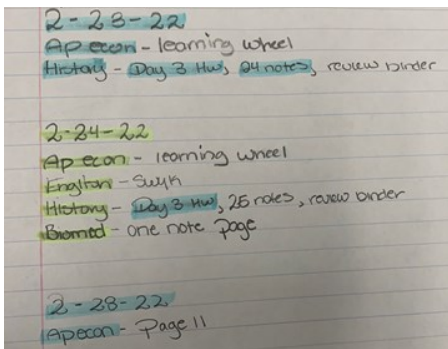 2-23-22
Ap econ - learning wheel
History - Day 3 Hw, 24 notes, review binder
2-24-22
Ap econ - learning wheel
English - Swyk
History - Day 3 Hw, 25 notes, review binder
Biomed - one note page
2-28-22
Apecon - Page 11